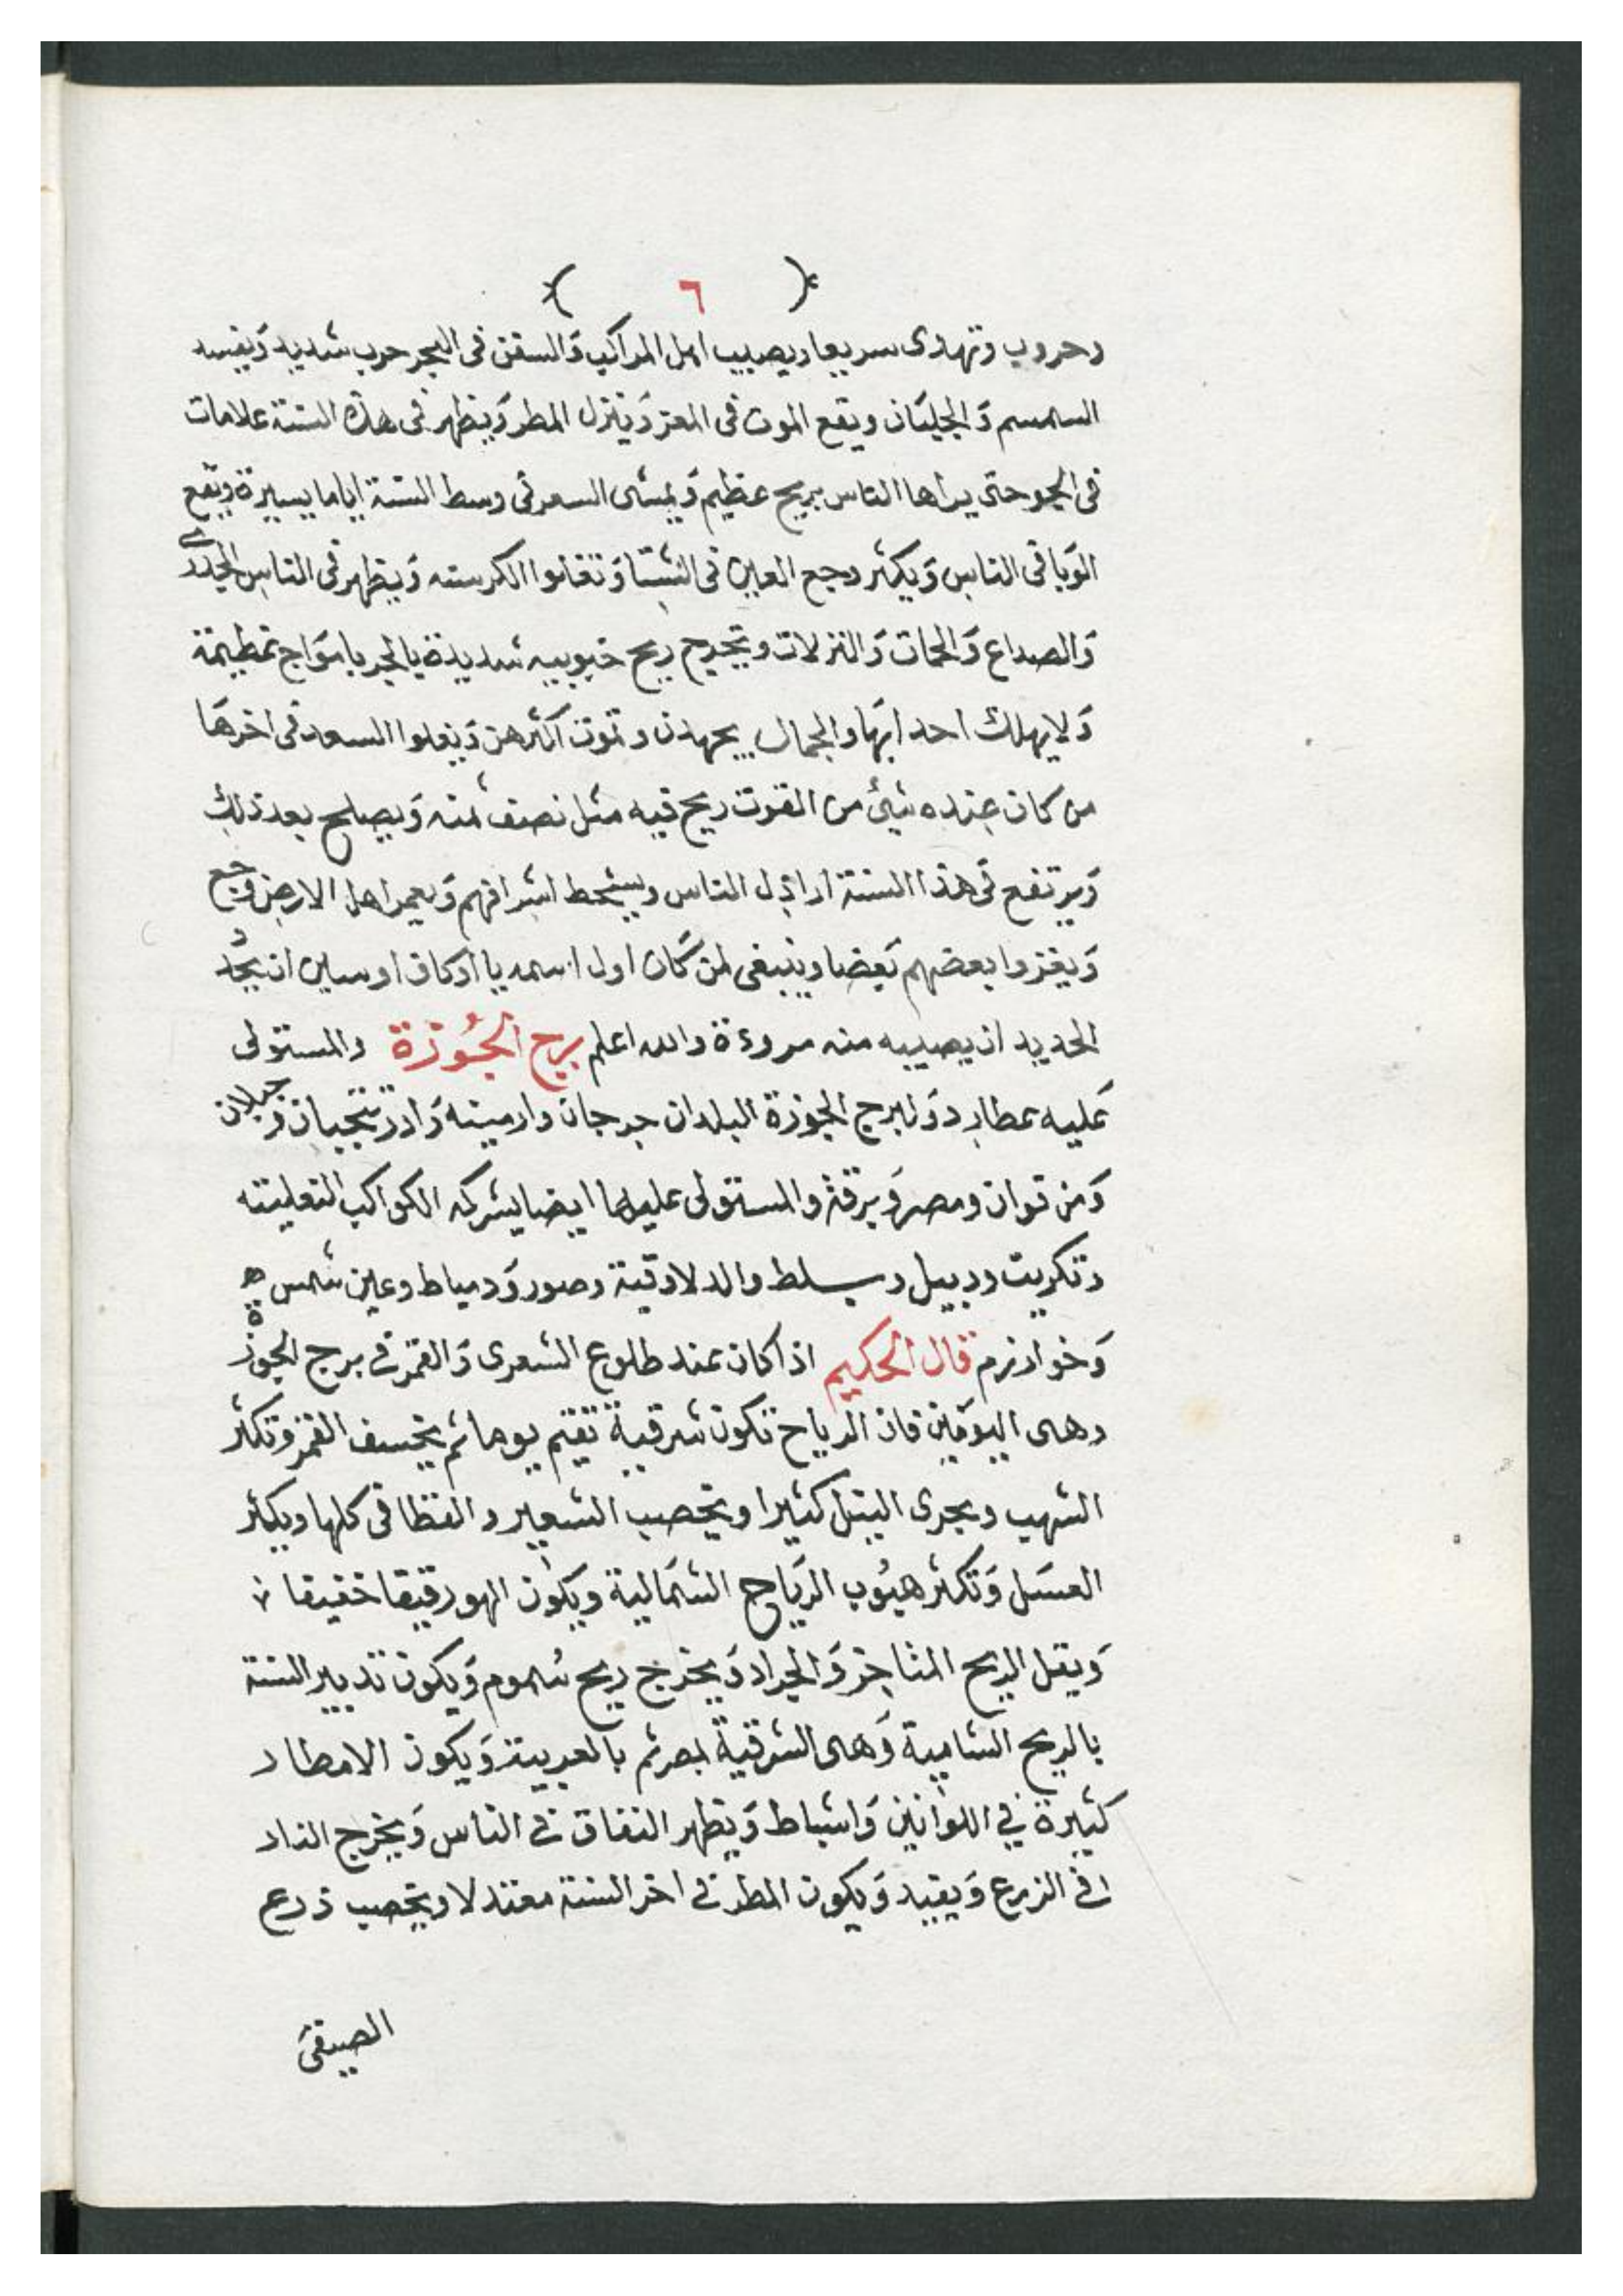 ( ٦ )
وحروب وتهدى سريعا ويصيب اهل المراكب وَالسفن فى البحر حرب شديد وَيفسد
السمسم وَالجلبَان ويقع الموت فى المعز وَينزل المطر وَيظهر فى هذه السنة علامات
فى الجو حتى يراها الناس بريح عظيم وَيمشى السعر فى وسط السنة اياما يسيرة ويقع
الوَبا فى الناس وَيكثر وجع العين فى الشتا وَتغلوا الكرسنه وَيظهر فى الناس الجدرى
وَالصداع وَالحمات وَالنزلات وتخرج ريح جنوبيه شديدة بالبحر بامَواج عظيمة
وَلا يهلك احد ابهَا والجمال يجهدن وتموت اكثرهن وَيغلوا السعر فى اخرهَا
من كان عنده شيئ من القوت ربح فيه مثل نصف ثمنه وَيصلح بعد ذلك
وَيرتفع فى هذا السنة اراذل الناس ويسخط اشرافهم وَيعم اهل الارض وجع
وَيغزوا بعضهم بَعضا وينبغى لمن كَان اول اسمه يا او كاف او سين ان يجد
الحديد ان يصيبه منه مروءة والله اعلم برج الجُوزة والمستولى
عَليه عطارد وَلبرج الجوزة البلدان جرجان وارمينه وَاذربيجان وجيلان
وَمن توان ومصر وَبرقة والمستولى عليها ايضا يشركه الكواكب الثعلبته
وتكريت ودبيل و سلط والدلاوقية وصور وَدمياط وعين شمس ه
وَخوارزم قال الحكيم اذا كان عند طلوع الشعرى وَالقمر فى برج الجوزة
وهى اليوقين فان الرياح تكون شرقية تقتم يوما ثم يخسف القمر وتكثر
الشهب ويجرى النيل كثيرا ويخصب الشعير والقظافى كلها ويكثر
العسَل وَتكثر هبُوب الريَاح الشمَالية ويكون الهو رقيقا خفيفا
وَيقل الريح المتاخر وَالجراد وَيخرج ريح سموم وَيكون تدبير السنة
بالريح الشامية وَهى الشرقية بمصر ثم بالعربية وَيكون الامطار
كثيرة في الكوانين وَاشباط وَيظهر النفاق فى الناس وَيخرج الفار
فى الزرع وَيفسد وَيكون المطر فى اخر السنة معتدلا ويخصب زرع
الصيفى